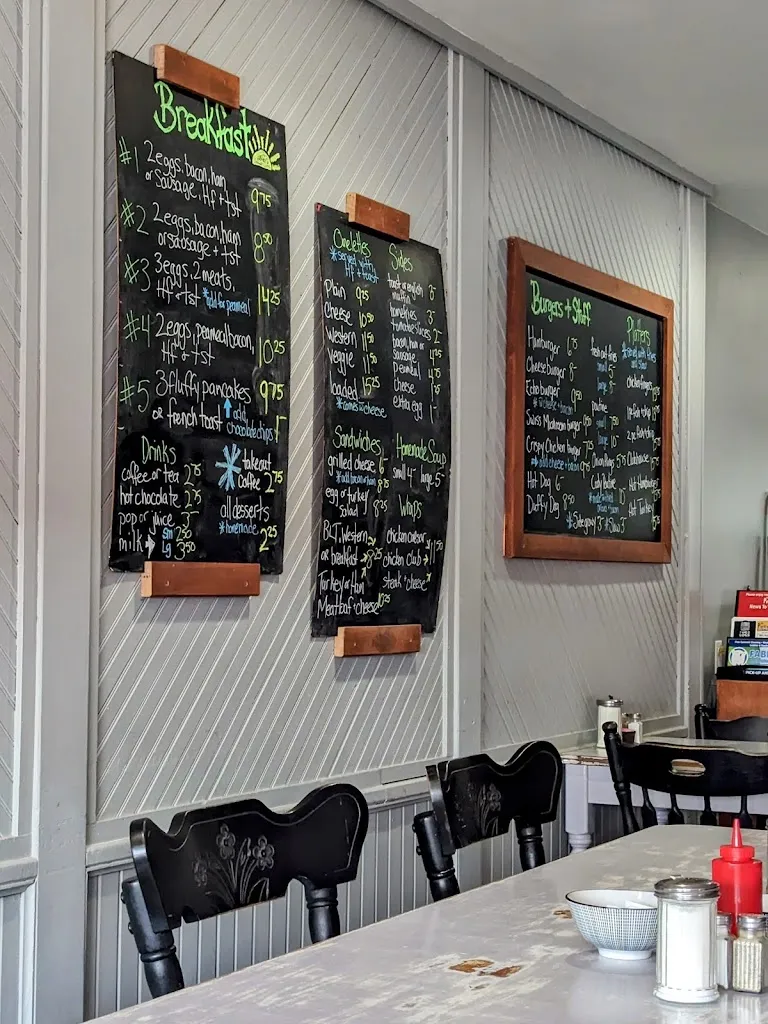 Breakfast
#1 2 eggs, bacon, ham
or sausage, Hf + tst 9.75
#2 2 eggs, bacon, ham
or sausage + tst 8.50
#3 3 eggs, 2 meats,
Hf + tst *add for peameal 14.25
#4 2 eggs, peameal bacon,
Hf + tst 10.25
#5 3 fluffy pancakes 9.75
or french toast add chocolate chips 1-
Drinks
coffee or tea 2.75
hot chocolate 2.75
pop or juice 3-
milk sm 2.50
Lg 3.50
* takeout
coffee 2.75
all desserts
*homemade 2.25
Omelettes
*served with
Hf + toast
Plain 9.25
Cheese 10.50
Western 11.50
Veggie 11.50
loaded 15.25
*comes w cheese
Sides
toast or english
muffin 3-
homefries 3-
tomato slices 2-
bacon, ham or
sausage 4.75
peameal 4.75
cheese
extra egg 1-
Sandwiches
grilled cheese 6-
*add bacon or ham 8.75
egg or turkey
salad 8.25
BLT, Western
or breakfast 8.25
Turkey or Ham
Meatloaf + cheese 10.25
Homemade Soup
small 4- large 5-
Wraps
chicken caesar
chicken club
steak + cheese
Burgers + Stuff
Hamburger 6.75
Cheeseburger 8-
Echo burger
Swiss Mushroom burger
Crispy Chicken burger
*add cheese + bacon
Hot Dog 6-
Duffy Dog 8.50
fresh cut fries
small 5-
large 8-
poutine
small 7.50
large
Onion Rings
Platters
*served with fries
and slaw
chicken fingers
1 pc fish + chip
2 pc fish + chip
Clubhouse
Hot Hamburger
Hot Turkey
*Side gravy